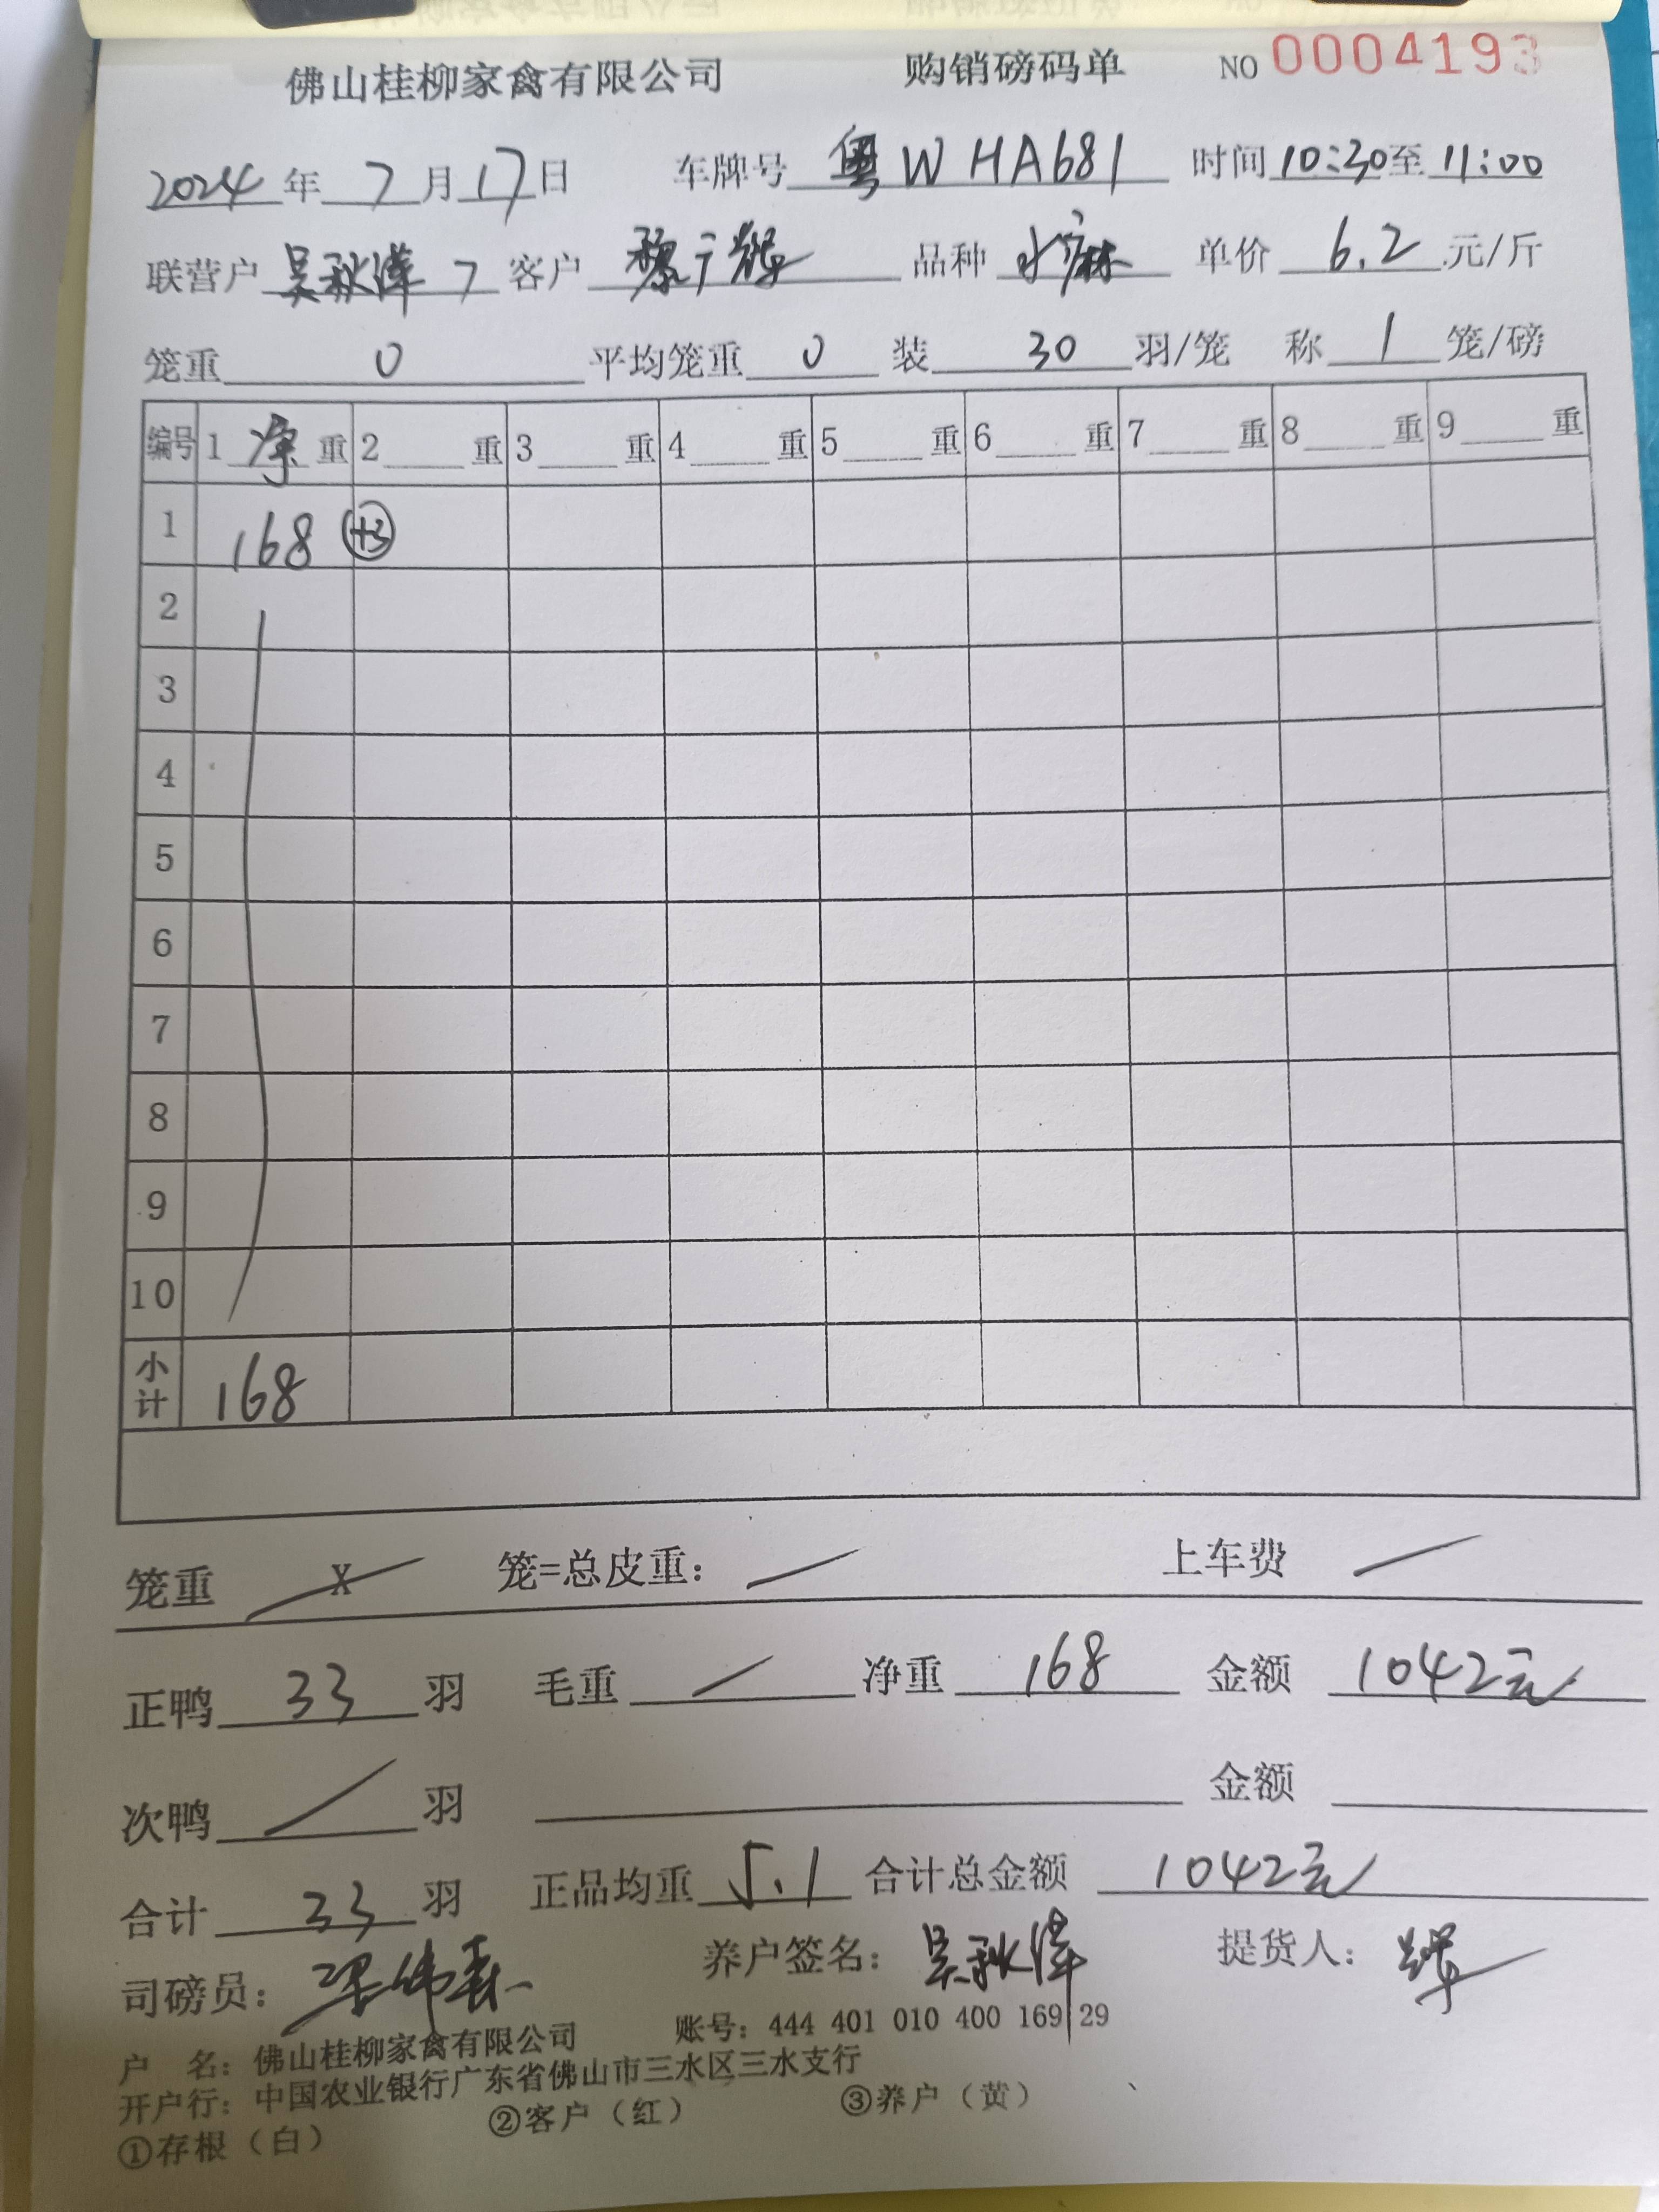 佛山桂柳家禽有限公司 购销磅码单 NO 0004193
2024年 7月17日 车牌号 粤W HA681 时间10:30至11:00
联营户 吴秋漳 7 客户 黎广辉 品种 小麻 单价 6.2 元/斤
笼重 0 平均笼重 0 装 30 羽/笼 称 1 笼/磅
编号 1 净 重 2 重 3 重 4 重 5 重 6 重 7 重 8 重 9 重
1 168 +3
2
3
4
5
6
7
8
9
10
小计 168
笼重 X 笼=总皮重: / 上车费 /
正鸭 33 羽 毛重 / 净重 168 金额 1042元
次鸭 / 羽 金额
合计 33 羽 正品均重 5.1 合计总金额 1042元
司磅员: 养户签名: 吴秋漳 提货人:
户 名: 佛山桂柳家禽有限公司 账号: 444 401 010 400 169 29
开户行: 中国农业银行广东省佛山市三水区三水支行
①存根（白） ②客户（红） ③养户（黄）